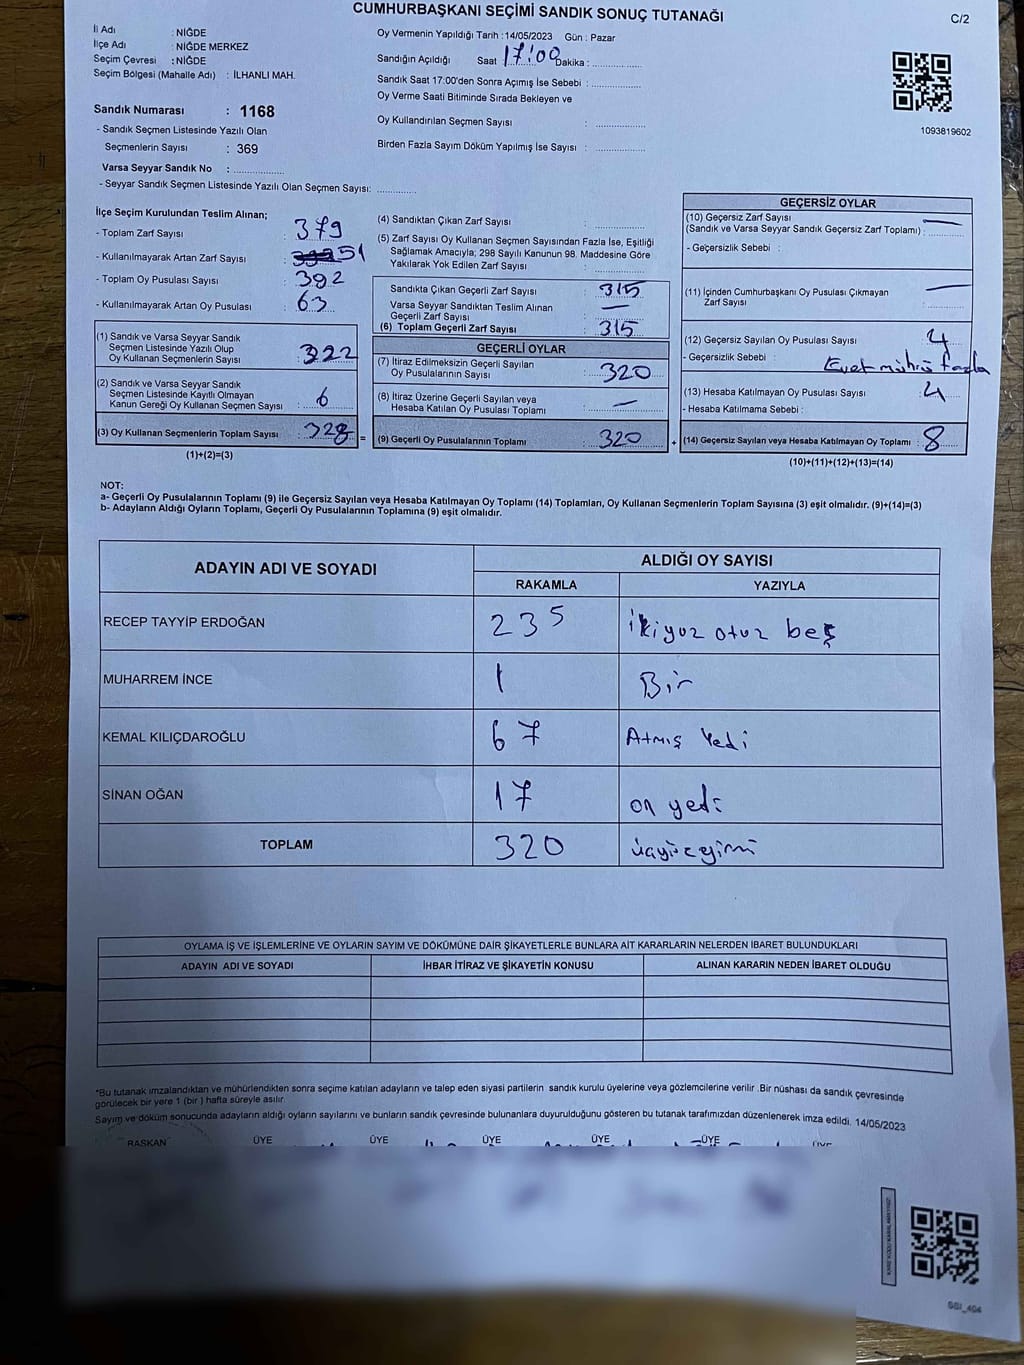 CUMHURBAŞKANI SEÇİMİ SANDIK SONUÇ TUTANAĞI
C/2
İl Adı : NİĞDE
İlçe Adı : NİĞDE MERKEZ
Seçim Çevresi : NİĞDE
Seçim Bölgesi (Mahalle Adı) : İLHANLI MAH.
Sandık Numarası : 1168
- Sandık Seçmen Listesinde Yazılı Olan
Seçmenlerin Sayısı : 369
Varsa Seyyar Sandık No :
- Seyyar Sandık Seçmen Listesinde Yazılı Olan Seçmen Sayısı:
Oy Vermenin Yapıldığı Tarih : 14/05/2023 Gün : Pazar
Sandığın Açıldığı Saat 17:00 Dakika :
Sandık Saat 17:00'den Sonra Açımış İse Sebebi :
Oy Verme Saati Bitiminde Sırada Bekleyen ve
Oy Kullandırılan Seçmen Sayısı :
Birden Fazla Sayım Döküm Yapılmış İse Sayısı :
1093819602
İlçe Seçim Kurulundan Teslim Alınan;
- Toplam Zarf Sayısı : 379
- Kullanılmayarak Artan Zarf Sayısı : 51
- Toplam Oy Pusulası Sayısı : 392
- Kullanılmayarak Artan Oy Pusulası : 63
(1) Sandık ve Varsa Seyyar Sandık
Seçmen Listesinde Yazılı Olup
Oy Kullanan Seçmenlerin Sayısı : 322
(2) Sandık ve Varsa Seyyar Sandık
Seçmen Listesinde Kayıtlı Olmayan
Kanun Gereği Oy Kullanan Seçmen Sayısı : 6
(3) Oy Kullanan Seçmenlerin Toplam Sayısı : 328 =
(1)+(2)=(3)
(4) Sandıktan Çıkan Zarf Sayısı :
(5) Zarf Sayısı Oy Kullanan Seçmen Sayısından Fazla İse, Eşitliği
Sağlamak Amacıyla; 298 Sayılı Kanunun 98. Maddesine Göre
Yakılarak Yok Edilen Zarf Sayısı :
Sandıkta Çıkan Geçerli Zarf Sayısı : 315
Varsa Seyyar Sandıktan Teslim Alınan
Geçerli Zarf Sayısı : —
(6) Toplam Geçerli Zarf Sayısı : 315
GEÇERLİ OYLAR
(7) İtiraz Edilmeksizin Geçerli Sayılan
Oy Pusulalarının Sayısı : 320
(8) İtiraz Üzerine Geçerli Sayılan veya
Hesaba Katılan Oy Pusulası Toplamı : —
(9) Geçerli Oy Pusulalarının Toplamı : 320 +
GEÇERSİZ OYLAR
(10) Geçersiz Zarf Sayısı —
(Sandık ve Varsa Seyyar Sandık Geçersiz Zarf Toplamı) :
- Geçersizlik Sebebi :
(11) İçinden Cumhurbaşkanı Oy Pusulası Çıkmayan —
Zarf Sayısı :
(12) Geçersiz Sayılan Oy Pusulası Sayısı : 4
- Geçersizlik Sebebi : Evet mührü fazla
(13) Hesaba Katılmayan Oy Pusulası Sayısı : 4
- Hesaba Katılmama Sebebi :
(14) Geçersiz Sayılan veya Hesaba Katılmayan Oy Toplamı : 8
(10)+(11)+(12)+(13)=(14)
NOT:
a- Geçerli Oy Pusulalarının Toplamı (9) ile Geçersiz Sayılan veya Hesaba Katılmayan Oy Toplamı (14) Toplamları, Oy Kullanan Seçmenlerin Toplam Sayısına (3) eşit olmalıdır. (9)+(14)=(3)
b- Adayların Aldığı Oyların Toplamı, Geçerli Oy Pusulalarının Toplamına (9) eşit olmalıdır.
ADAYIN ADI VE SOYADI
ALDIĞI OY SAYISI
RAKAMLA YAZIYLA
RECEP TAYYİP ERDOĞAN 235 ikiyuz otuz beş
MUHARREM İNCE 1 Bir
KEMAL KILIÇDAROĞLU 67 Atmış Yedi
SİNAN OĞAN 17 on yedi
TOPLAM 320 üçyüzyirmi
OYLAMA İŞ VE İŞLEMLERİNE VE OYLARIN SAYIM VE DÖKÜMÜNE DAİR ŞİKAYETLERLE BUNLARA AİT KARARLARIN NELERDEN İBARET BULUNDUKLARI
ADAYIN ADI VE SOYADI İHBAR İTİRAZ VE ŞİKAYETİN KONUSU ALINAN KARARIN NEDEN İBARET OLDUĞU
*Bu tutanak imzalandıktan ve mühürlendikten sonra seçime katılan adayların ve talep eden siyasi partilerin sandık kurulu üyelerine veya gözlemcilerine verilir .Bir nüshası da sandık çevresinde
görülecek bir yere 1 (bir ) hafta süreyle asılır.
Sayım ve döküm sonucunda adayların aldığı oyların sayılarını ve bunların sandık çevresinde bulunanlara duyurulduğunu gösteren bu tutanak tarafımızdan düzenlenerek imza edildi. 14/05/2023
BAŞKAN ÜYE ÜYE ÜYE ÜYE ÜYE ÜYE